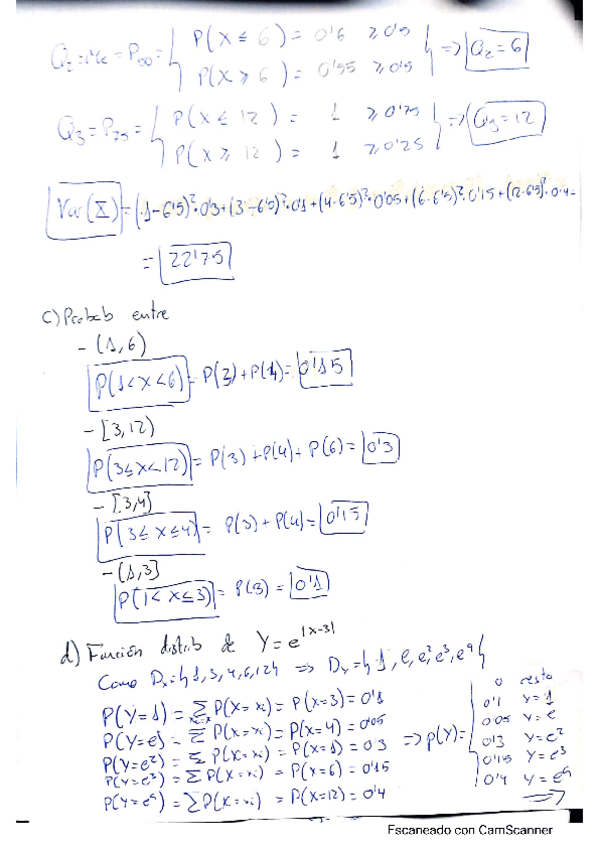 Q₂ = Me = P₅₀ = { P(X ≤ 6) = 0'6 ≥ 0'5
P(X ≥ 6) = 0'55 ≥ 0'5 } => Q₂ = 6
Q₃ = P₇₅ = { P(X ≤ 12) = 1 ≥ 0'75
P(X ≥ 12) = 1 ≥ 0'25 } => Q₃ = 12
Var(X) = (1-6'5)²·0'3+(3-6'5)²·0'1+(4-6'5)²·0'05+(6-6'5)²·0'15+(12-6'5)²·0'4=
= 22'75
c) Probab entre
- (1,6)
P(1<x<6) = P(3)+P(4)= 0'15
- [3,12)
P(3≤x<12) = P(3)+P(4)+P(6) = 0'3
- [3,4]
P(3≤x≤4) = P(3)+P(4)= 0'15
- (1,3]
P(1<x≤3) = P(3) = 0'1
d) Función distrib de Y = e^|x-3|
Como Dx={1,3,4,6,12} => Dy={1,e,e²,e³,e⁹}
P(Y=1) = Σ P(X=xi) = P(X=3) = 0'1
P(Y=e) = Σ P(X=xi) = P(X=4) = 0'05
P(Y=e²) = Σ P(X=xi) = P(X=1) = 0'3
P(Y=e³) = Σ P(X=xi) = P(X=6) = 0'15
P(Y=e⁹) = Σ P(X=xi) = P(X=12) = 0'4
=> p(Y) = { 0 resto
0'1 Y=1
0'05 Y=e
0'3 Y=e²
0'15 Y=e³
0'4 Y=e⁹
=>
Escaneado con CamScanner